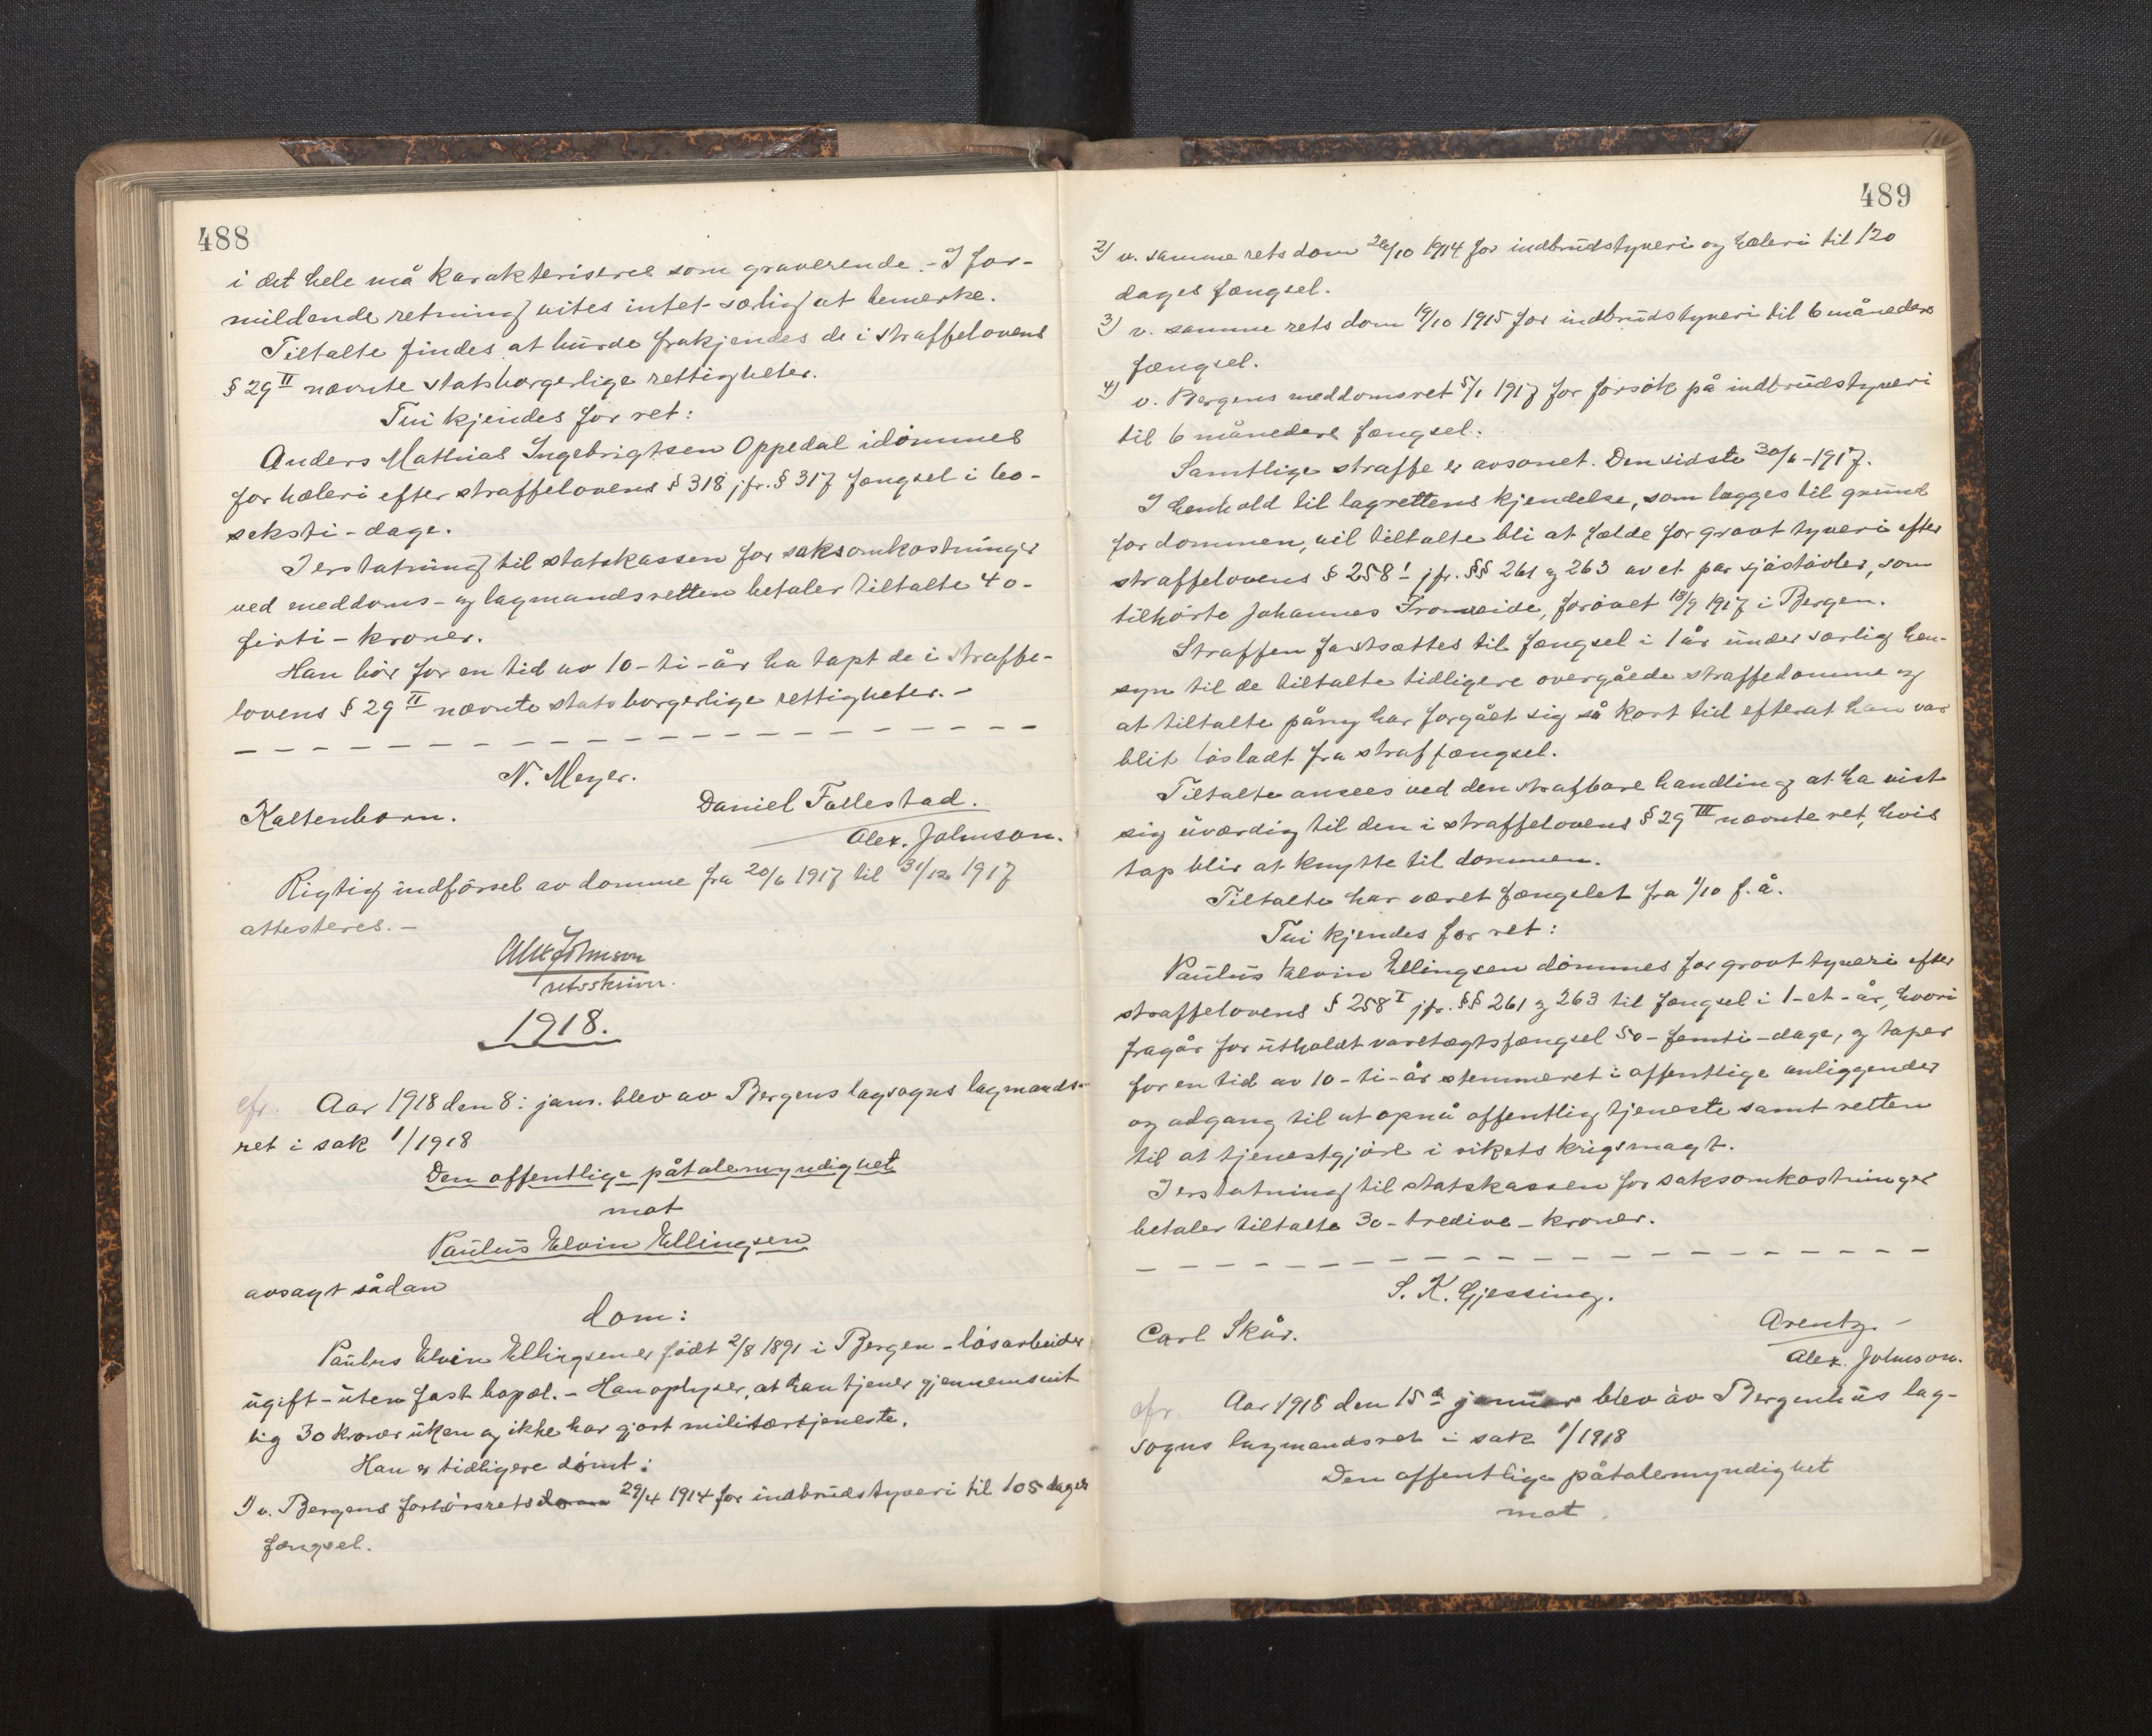 488
i det hele må karakteriseres som graverende. - I for-
mildende retning vites intet særlig at bemerke.
Tiltalte findes at burde frakjendes de i straffelovens
§ 29 II nævnte statsborgerlige rettigheter.
Tui kjendes for ret:
Anders Mathias Ingebrigtsen Oppedal idømmes
for hæleri efter straffelovens § 318 jfr. § 317 fængsel i 60-
seksti-dage.
I erstatning til statskassen for saksomkostninger
ved meddoms- og lagmandsretten betaler tiltalte 40-
firti-kroner.
Han bør for en tid av 10-ti-år ha tapt de i straffe-
lovens § 29 II nævnte statsborgerlige rettigheter. -
N. Meyer.
Kaltenborn.
Daniel Follestad.
Alex. Johnson.
Rigtig indførsel av domme fra 20/6 1917 til 31/12 1917
attesteres. -
Alex Johnson
retsskriver.
1918.
cfr. Aar 1918 den 8: jan. blev av Bergens lagsogns lagmands-
ret i sak 1/1918
Den offentlige påtalemyndighet
mot
Paulus Elvin Ellingsen
avsagt sådan
dom:
Paulus Elvin Ellingsen er født 2/8 1891 i Bergen - løsarbeider
ugift - uten fast bopæl. - Han oplyser, at han tjener gjennemsnit
lig 30 kroner uken og ikke har gjort militærtjeneste.
Han er tidligere dømt:
1) v. Bergens forhørsrets dom 29/4 1914 for indbrudstyveri til 105 dages
fængsel.
489
2) v. samme rets dom 1914 for indbrudstyveri og hæleri til 120
dages fængsel.
3) v. samme rets dom 19/10 1915 for indbrudstyveri til 6 måneders
fængsel.
4) v. Bergens meddomsret 5/1 1917 for forsøk på indbrudstyveri
til 6 måneders fængsel.
Samtlige straffe er avsonet. Den sidste 30/6 - 1917.
I henhold til lagrettens kjendelse, som lægges til grund
for dommen, vil tiltalte bli at fælde for grovt tyveri efter
straffelovens § 258 I jfr. §§ 261 og 263 av et par sjøstøvler, som
tilhørte Johannes Tromreide, forøvet 18/9 1917 i Bergen.
Straffen fastsættes til fængsel i 1 år under særlig hen-
syn til de tiltalte tidligere overgåede straffedomme og
at tiltalte påny har forgået sig så kort tid efterat han var
blit løsladt fra straffængsel.
Tiltalte ansees ved den strafbare handling at ha vist
sig uværdig til den i straffelovens § 29 III nævnte ret, hvis
tap blir at knytte til dommen.
Tiltalte har været fængslet fra 1/10 f. å.
Tui kjendes for ret:
Paulus Elvin Ellingsen dømmes for grovt tyveri efter
straffelovens § 258 I jfr. §§ 261 og 263 til fængsel i 1-et-år, hvori
fragår for utholdt varetægtsfængsel 50-femti-dage, og taper
for en tid av 10-ti-år stemmeret i offentlige anliggender
og adgang til at opnå offentlig tjeneste samt retten
til at tjenestgjøre i rikets krigsmagt.
I erstatning til statskassen for saksomkostninger
betaler tiltalte 30-tredive-kroner.
S. K. Gjessing.
Carl Skår.
Arentz -
Alex. Johnson.
cfr. Aar 1918 den 15de januar blev av Bergenhus lag-
sogns lagmandsret i sak 1/1918
Den offentlige påtalemyndighet
mot